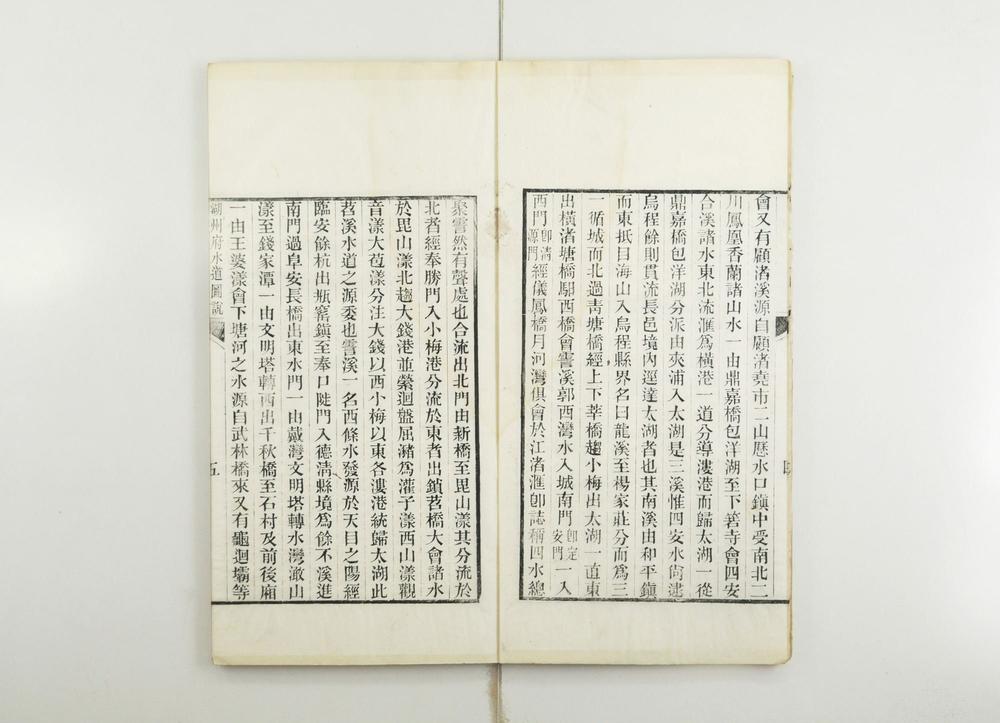 會又有顧渚溪源自顧渚堯市二山歷水口鎭中受南北二
川鳳凰香蘭諸山水一由鼎嘉橋包洋湖至下箬寺會四安
合溪諸水東北流滙爲橫港一道分導漊港而歸太湖一從
鼎嘉橋包洋湖分派由夾浦入太湖是三溪惟四安水尙逮
烏程餘則貫流長邑境內逕達太湖者也其南溪由和平鎭
而東抵目海山入烏程縣界名曰龍溪至楊家莊分而爲三
一循城而北過靑塘橋經上下莘橋趨小梅出太湖一直東
出橫渚塘橋馹西橋會霅溪郭西灣水入城南門卽定安門一入
西門卽淸源門經儀鳳橋月河灣俱會於江渚滙卽誌稱四水總
聚霅然有聲處也合流出北門由新橋至毘山漾其分流於
北者經奉勝門入小梅港分流於東者出鎖苕橋大會諸水
於毘山漾北趨大錢港並縈迴盤屈瀦爲灌子漾西山漾觀
音漾大苞漾分注大錢以西小梅以東各漊港統歸太湖此
苕溪水道之源委也霅溪一名西條水發源於天目之陽經
臨安餘杭出瓶窰鎭至奉口陡門入德淸縣境爲餘不溪進
南門過阜安長橋出東水門一由戴灣文明塔轉水灣瀫山
漾至錢家潭一由文明塔轉西出千秋橋至石村及前後廂
一由王婆漾會下塘河之水源自武林橋來又有龜迴壩等
湖州府水道圖說
五